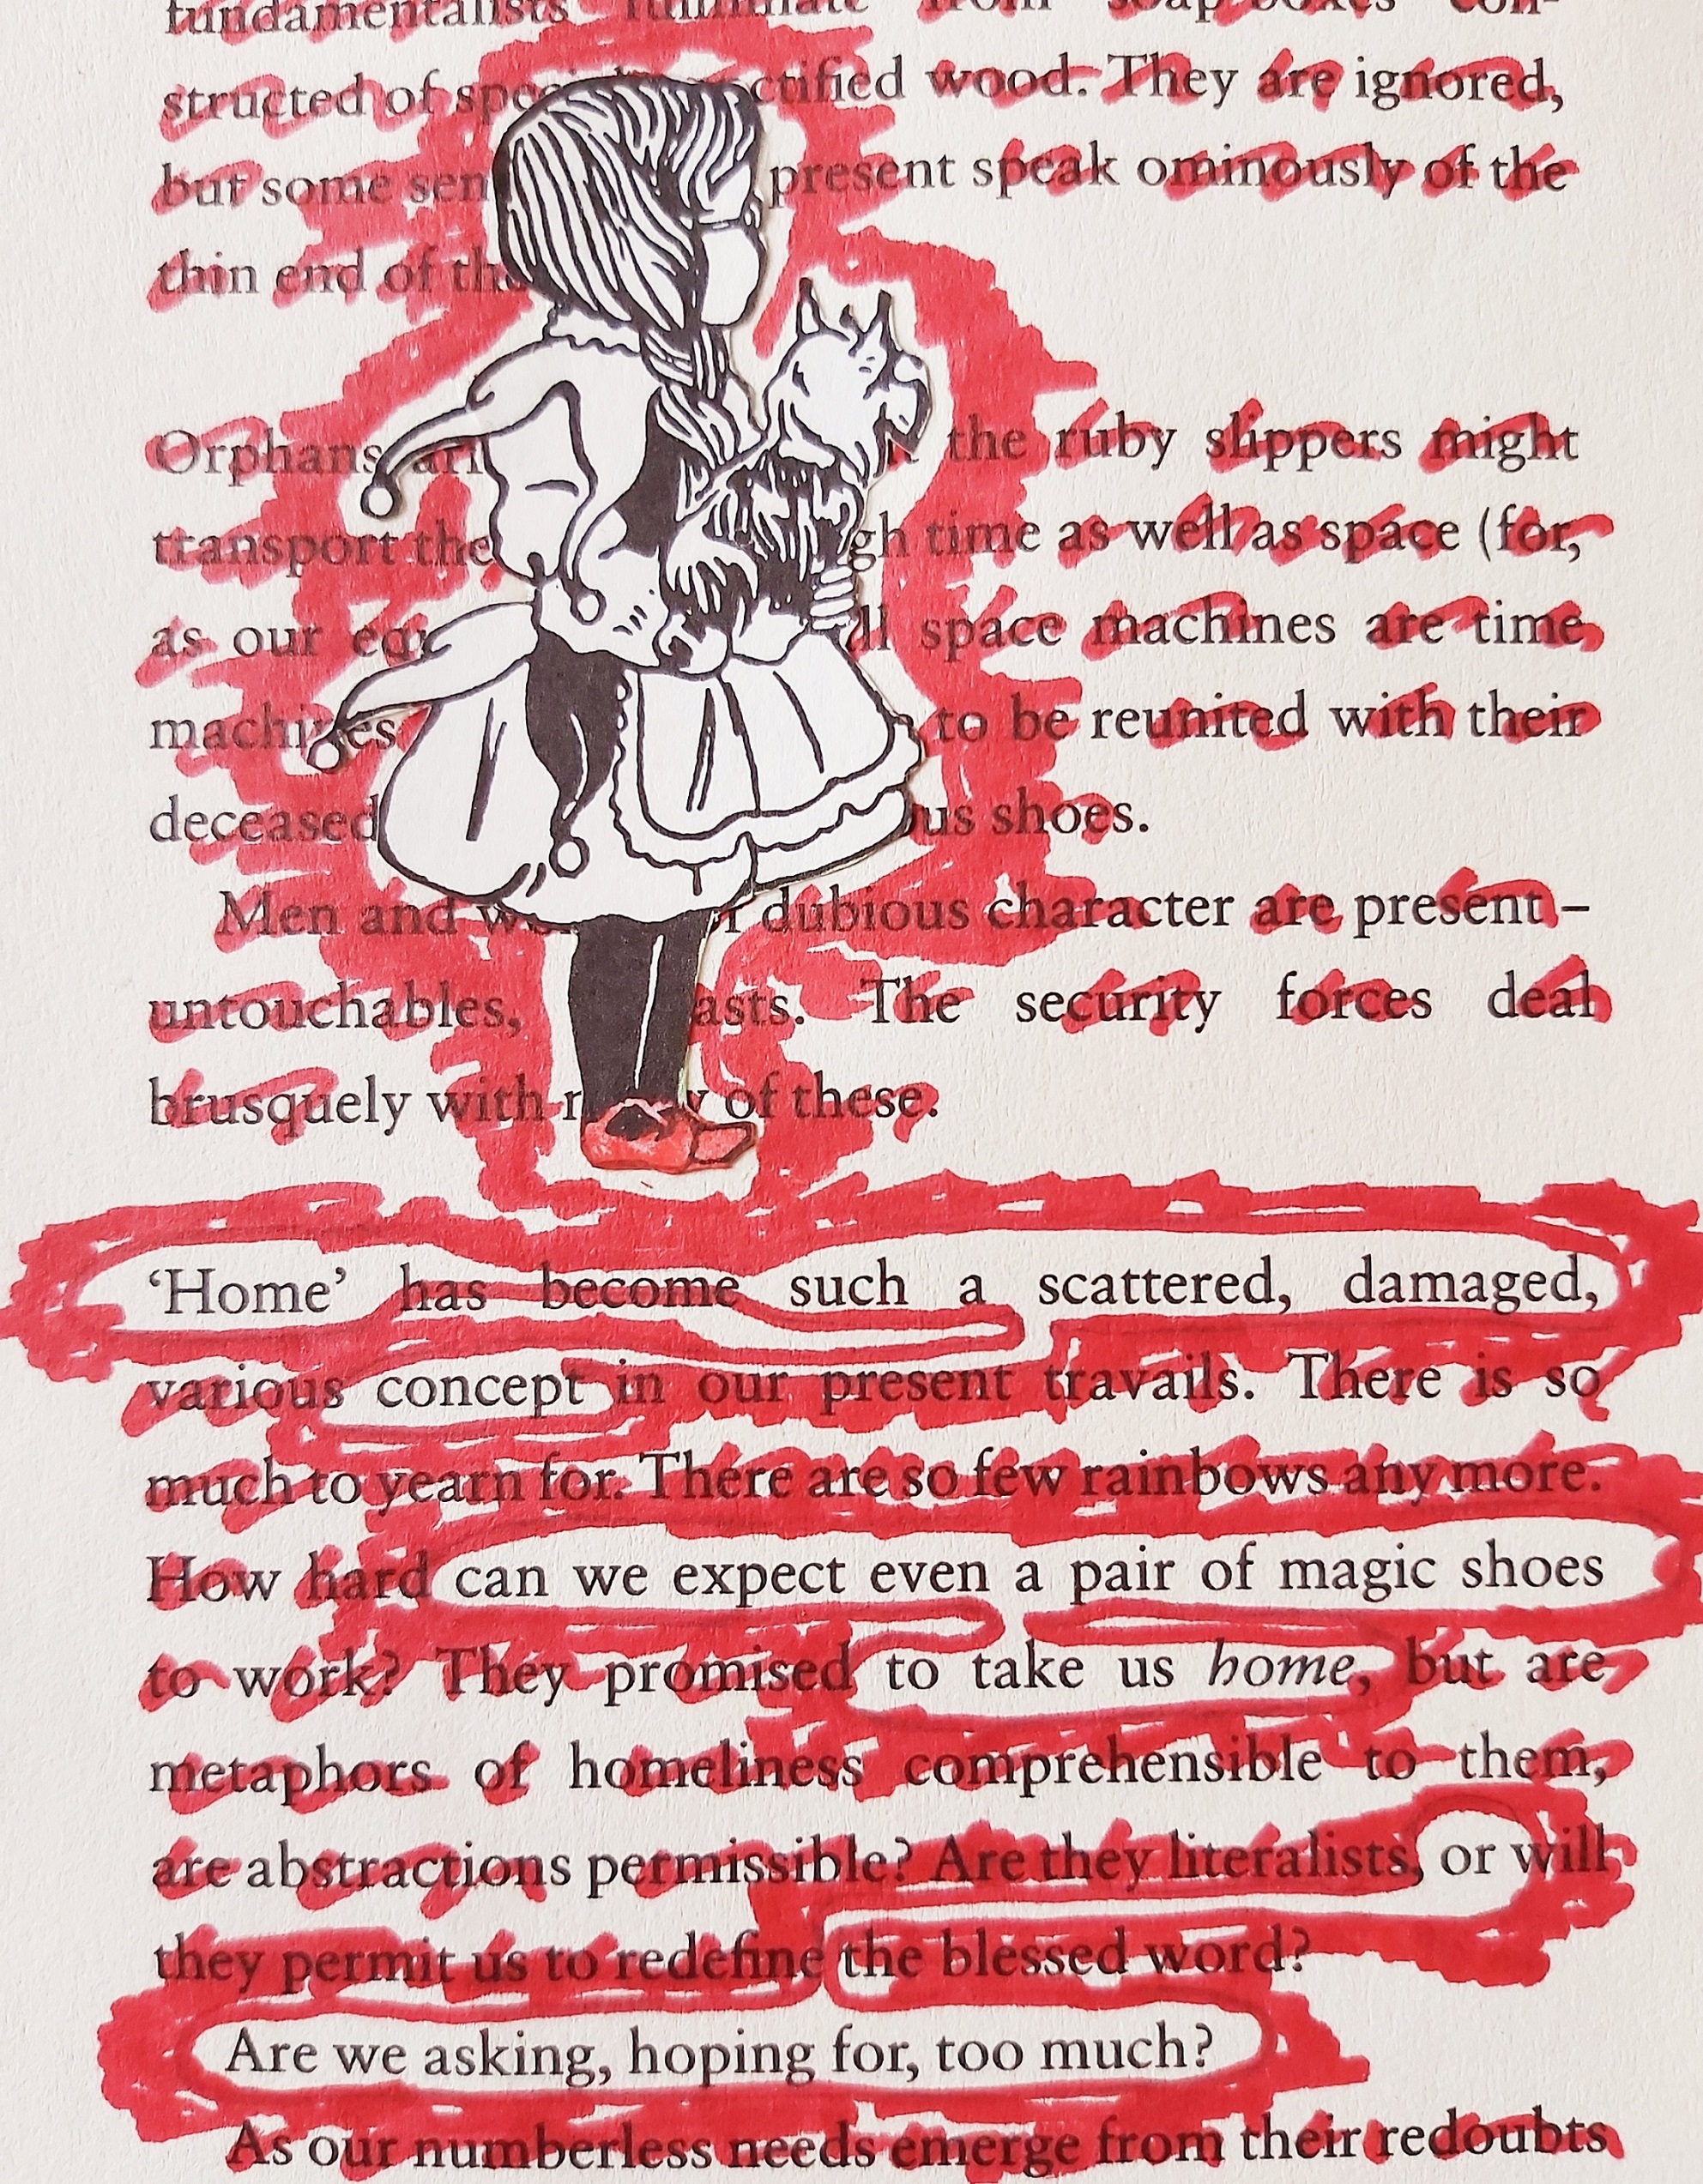 fundamentalists fulminate from soap-boxes con-
structed of specially rectified wood. They are ignored,
but some sen present speak ominously of the
thin end of the
Orphans arri the ruby slippers might
transport the gh time as well as space (for,
as our equ all space machines are time
machines to be reunited with their
deceased us shoes.
Men and wo of dubious character are present –
untouchables, asts. The security forces deal
brusquely with many of these.
‘Home’ has become such a scattered, damaged,
various concept in our present travails. There is so
much to yearn for. There are so few rainbows any more.
How hard can we expect even a pair of magic shoes
to work? They promised to take us home, but are
metaphors of homeliness comprehensible to them,
are abstractions permissible? Are they literalists, or will
they permit us to redefine the blessed word?
Are we asking, hoping for, too much?
As our numberless needs emerge from their redoubts